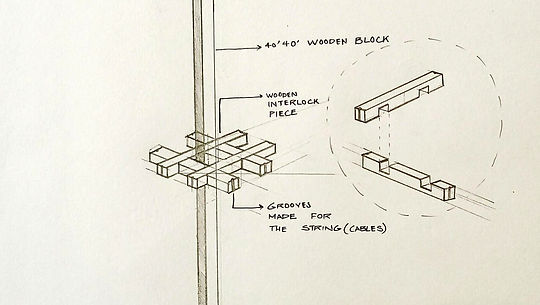 40'40' WOODEN BLOCK
WOODEN
INTERLOCK
PIECE
GROOVES
MADE FOR
THE STRING (CABLES)